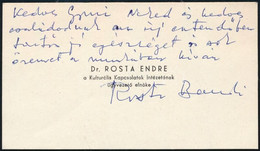 Kedves Gyuri Neked és kedves
családodnak az új esztendőben
tartós jó egészséget és sok
örömet a munkában kíván
Dr. ROSTA ENDRE
a Kulturális Kapcsolatok Intézetének
ügyvezető elnöke
Rosta Bandi